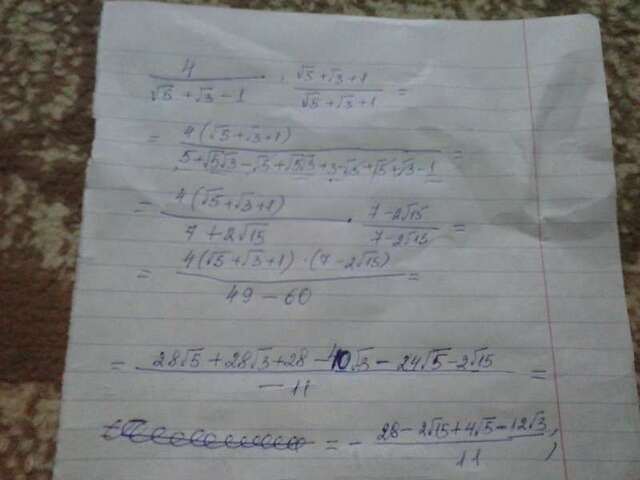 4/(√5 + √3 − 1) · (√5 + √3 + 1)/(√5 + √3 + 1) =
= 4(√5 + √3 + 1)/(5 + √5√3 − √5 + √5√3 + 3 − √3 + √5 + √3 − 1) =
= 4(√5 + √3 + 1)/(7 + 2√15) · (7 − 2√15)/(7 − 2√15) =
= 4(√5 + √3 + 1) · (7 − 2√15)/(49 − 60) =
= (28√5 + 28√3 + 28 − 40√3 − 24√5 − 2√15)/(−11) =
= − (28 − 2√15 + 4√5 − 12√3)/11 ;